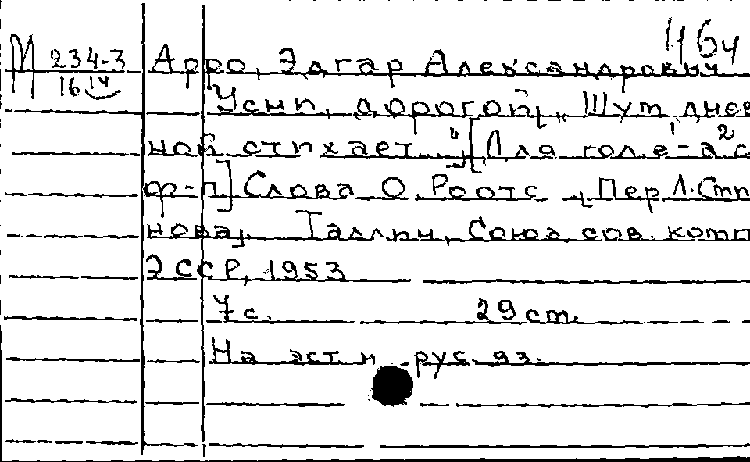 1164
М 234-3 Арро, Эдгар Александрович
16 14 Усни, дорогой, „Шум днев
ной стихает..." [Для гол. с
ф-п] Слова О. Роотс, Пер. Л. Стп
нова, Таллин, Союз сов. комп
ЭССР, 1953
7 с. 29 cm.
На эст. и рус. яз.